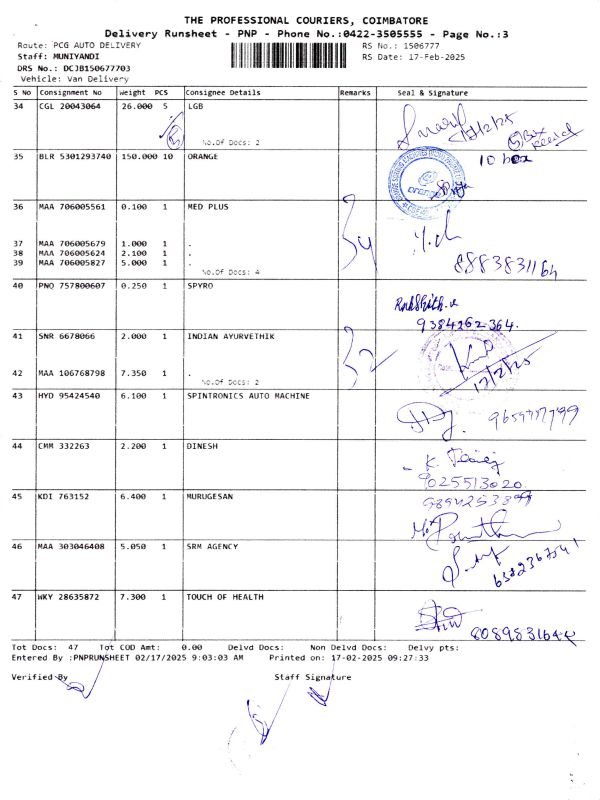 THE PROFESSIONAL COURIERS, COIMBATORE
Delivery Runsheet - PNP - Phone No.:0422-3505555 - Page No.:3
Route: PCG AUTO DELIVERY RS No.: 1506777
Staff: MUNIYANDI RS Date: 17-Feb-2025
DRS No.: DCJB150677703
Vehicle: Van Delivery
S No Consignment No Weight PCS Consignee Details Remarks Seal & Signature
34 CGL 20043064 26.000 5 LGB
No.Of Docs: 2
35 BLR 5301293740 150.000 10 ORANGE 10 box
36 MAA 706005561 0.100 1 MED PLUS
37 MAA 706005679 1.000 1 .
38 MAA 706005624 2.100 1 .
39 MAA 706005827 5.000 1 . 8883831164
No.Of Docs: 4
40 PNQ 757800607 0.250 1 SPYRO
9384262364.
41 SNR 6678066 2.000 1 INDIAN AYURVETHIK
42 MAA 106768798 7.350 1 . 17/2/25
No.Of Docs: 2
43 HYD 95424540 6.100 1 SPINTRONICS AUTO MACHINE
44 CMM 332263 2.200 1 DINESH
9025513020
45 KDI 763152 6.400 1 MURUGESAN
46 MAA 303046408 5.050 1 SRM AGENCY
47 WKY 28635872 7.300 1 TOUCH OF HEALTH
Tot Docs: 47 Tot COD Amt: 0.00 Delvd Docs: Non Delvd Docs: Delvy pts:
Entered By :PNPRUNSHEET 02/17/2025 9:03:03 AM Printed on: 17-02-2025 09:27:33
Verified By Staff Signature